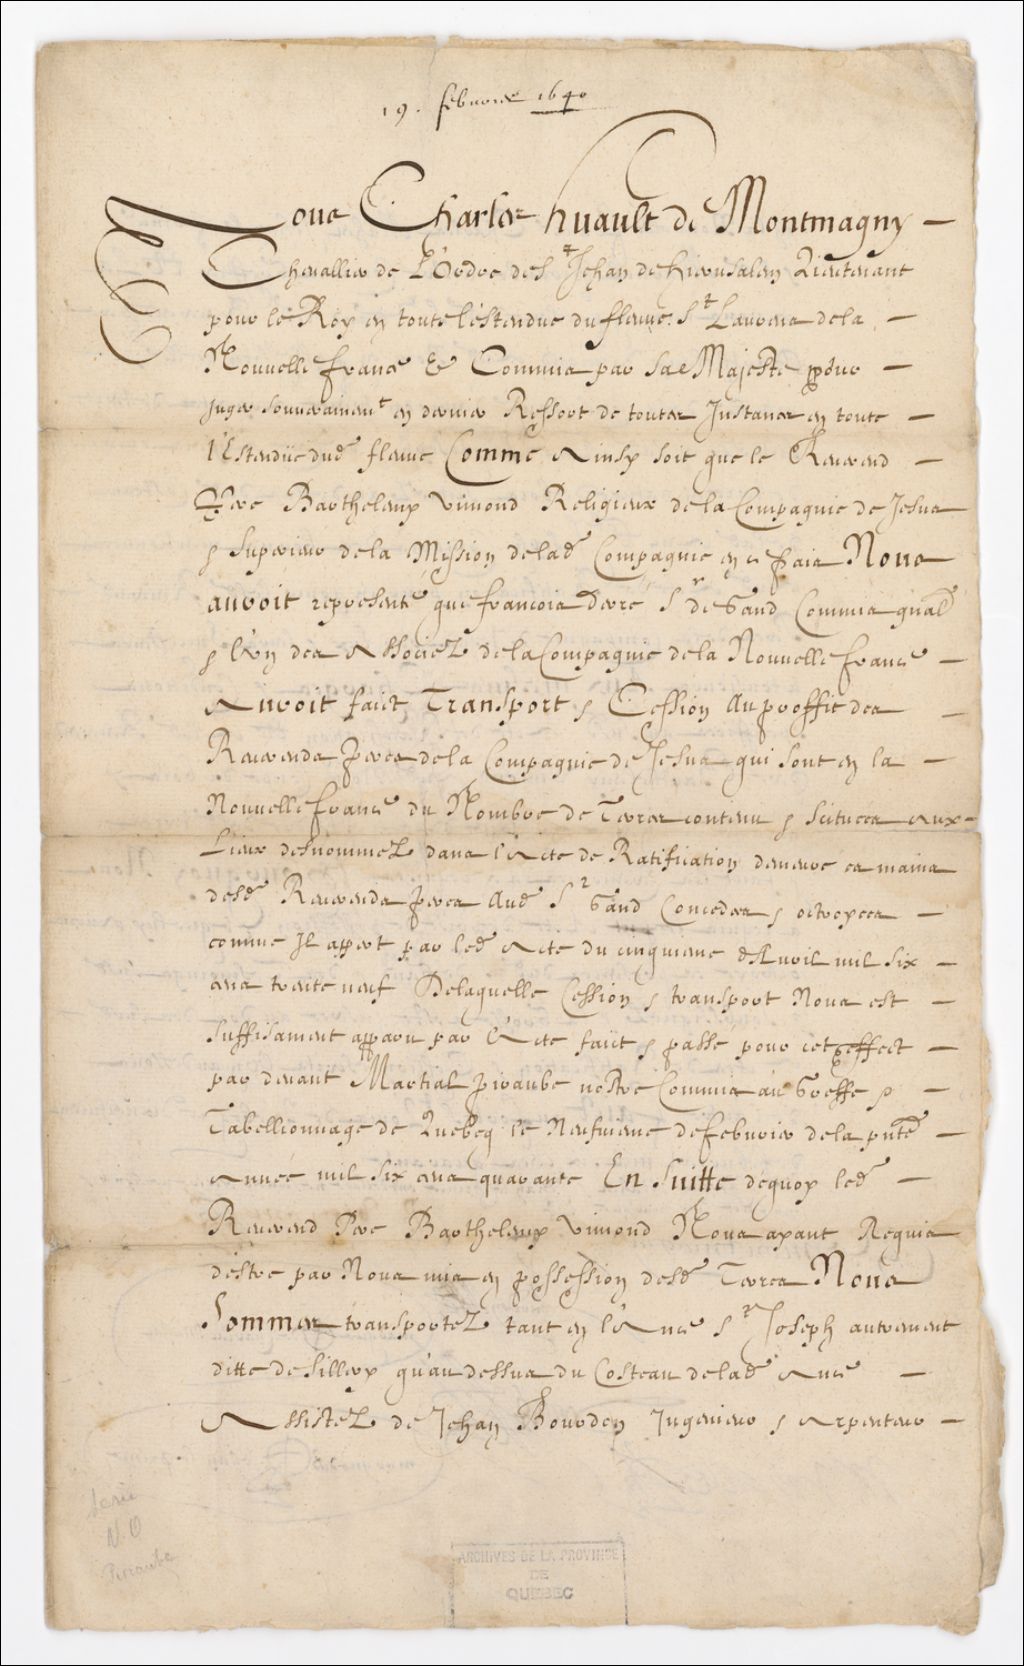 19. febvrier 1640
Nous Charles huault de Montmagny
Chevallier de L'Ordre de St Jehan de hierusalem Lieutenant
pour le Roy en toute l'estendue du fleuve St Laurens de la
Nouvelle france & Commis par Sa Majesté pour
juger souverainemt en dernier Ressort de toutes Instances en toute
l'Estendüe dud fleuve Comme Ainsy soit que le Reverend
Pere Barthelemy Vimond Religieux de la Compagnie de Jesus
& Superieur de la Mission de lad Compagnie en ce païs Nous
auroit representé que francois Derré Sr de Gand Commis gnal
& l'un des Associez de la Compagnie de la Nouvelle france
Auroit faict Transport & Cession Au proffit des
Reverends peres de la Compagnie de Jesus qui sont en la
Nouvelle france du Nombre de Terres contenu & scituées aux
Lieux desnommez dans l'Acte de Ratification demeuré es mains
desd Reverends peres Aud Sr Gand Concedées & octroyées
comme Il appert par led Acte du cinquieme d'Avril mil six
cens trente neuf De laquelle Cession & transport Nous est
suffisament apparu par l'Acte faict & passé pour cet effect
par devant Martial piraube nostre Commis au Greffe &
Tabellionnage de Quebecq le Neufvieme de febvrier de la pnte
Année mil six cens quarante En Suitte dequoy led
Reverend Pere Barthelemy Vimond Nous ayant Requis
d'estre par Nous mis en possession desd Terres Nous
Sommes transportez tant en l'Ance St Joseph autrement
ditte de Sillery qu'au dessus du Costeau de lad Ance
Assistez de Jehan Bourdon Ingenieur & Arpenteur
Serie
N.O
Piraube
ARCHIVES DE LA PROVINCE
DE
QUEBEC